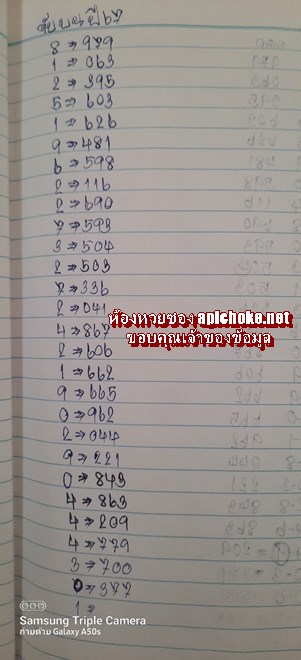 จับบนปี67
8 => 979
1 => 063
2 => 395
5 => 603
1 => 626
9 => 481
6 => 598
2 => 116
2 => 690
7 => 593
3 => 504
2 => 503
7 => 336
2 => 041
4 => 867
2 => 606
1 => 662
9 => 665
0 => 962
2 => 044
9 => 221
0 => 843
4 => 863
4 => 209
4 => 779
3 => 700
0 => 377
1 =
ห้องหวยซอง apichoke.net
ขอบคุณเจ้าของข้อมูล
Samsung Triple Camera
ถ่ายด้วย Galaxy A50s